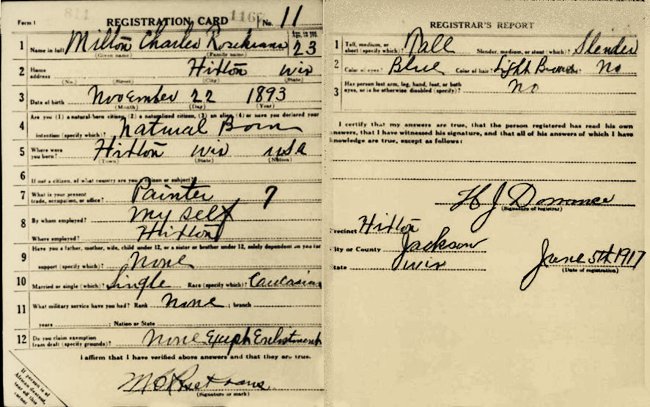 Form 1
REGISTRATION CARD
No. 11
1 Name in full Milton Charles Rosekrans 23
(Given name) (Family name)
2 Home address Hixton Wis
(No.) (Street) (City) (State)
3 Date of birth November 22 1893
(Month) (Day) (Year)
4 Are you (1) a natural-born citizen, (2) a naturalized citizen, (3) an alien, (4) or have you declared your
intention (specify which)? Natural Born
5 Where were you born? Hixton Wis USA
(Town) (State) (Nation)
6 If not a citizen, of what country are you a citizen or subject?
7 What is your present trade, occupation, or office? Painter 7
8 By whom employed? my self
Where employed? Hixton
9 Have you a father, mother, wife, child under 12, or a sister or brother under 12, solely dependent on you for
support (specify which)? None
10 Married or single (which)? Single Race (specify which)? Caucasian
11 What military service have you had? Rank None ; branch
years ; Nation or State
12 Do you claim exemption from draft (specify grounds)? None Enlistment
I affirm that I have verified above answers and that they are true.
(Signature or mark)
If person is of African descent, tear off this corner
REGISTRAR'S REPORT
1 Tall, medium, or short (specify which)? Tall Slender, medium, or stout (which)? Slender
2 Color of eyes? Blue Color of hair? Light Brown No
3 Has person lost arm, leg, hand, foot, or both
eyes, or is he otherwise disabled (specify)? No
I certify that my answers are true, that the person registered has read his own
answers, that I have witnessed his signature, and that all of his answers of which I have
knowledge are true, except as follows:
H J Dorrance
(Signature of registrar)
Precinct Hixton
City or County Jackson
State Wis
June 5th 1917
(Date of registration)